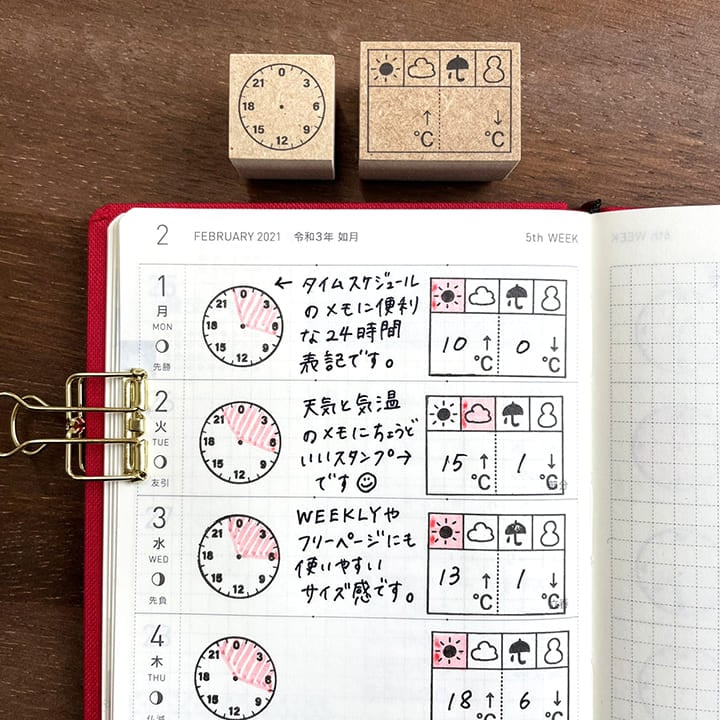 0
3
6
9
12
15
18
21
↑
℃
↓
℃
2 FEBRUARY 2021 令和3年 如月 5th WEEK
1
月
MON
先勝
0
3
6
9
12
15
18
21
← タイムスケジュール
のメモに便利
な24時間
表記です。
10 ↑ ℃ 0 ↓ ℃
2
火
TUE
友引
0
3
6
9
12
15
18
21
天気と気温
のメモにちょうど
いいスタンプ→
です
15 ↑ ℃ 1 ↓ ℃
3
水
WED
先負
0
3
6
9
12
15
18
21
WEEKLYや
フリーページにも
使いやすい
サイズ感です。
13 ↑ ℃ 1 ↓ ℃
4
木
THU
仏滅
0
3
6
9
12
15
18
21
18 ↑ ℃ 6 ↓ ℃